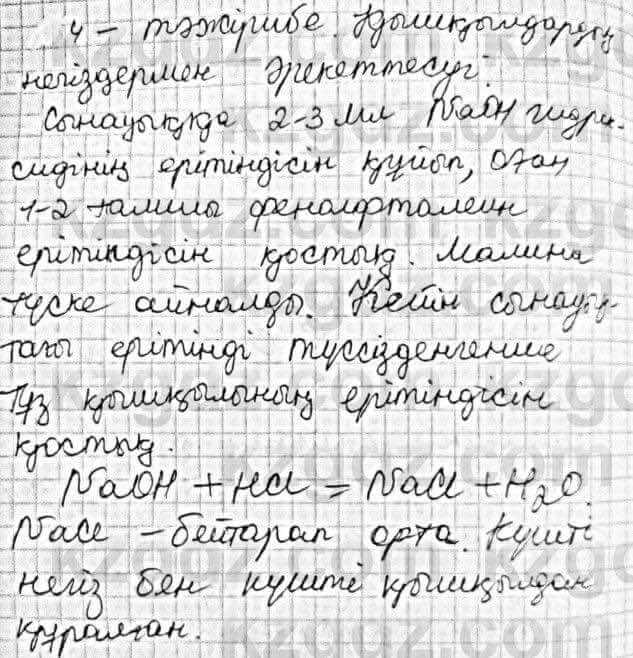 4 - тәжірибе. Қышқылдардың
негіздермен әрекеттесуі.
Сынауыққа 2-3 мл NaOH гидро-
сидінің ерітіндісін құйып, оған
1-2 тамшы фенолфталеин
ерітіндісін қостық. Малина
түске айналды. Кейін сынауық-
тағы ерітінді түссізденгенше
тұз қышқылының ерітіндісін
қостық.
NaOH + HCl = NaCl + H₂O.
NaCl - бейтарап орта. Күшті
негіз бен күшті қышқылдан
құралған.